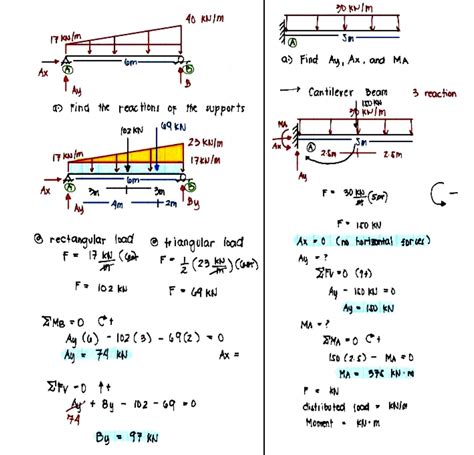 40 kN/m
17 kN/m
Ax A 6m B
Ay B
a) Find the reactions of the supports
102 kN 69 kN
23 kN/m
17 kN/m 17 kN/m
6m
Ax A B
3m 3m
Ay 4m 2m By
rectangular load triangular load
F = 17 kN/m (6m) F = 1/2 (23 kN/m)(6m)
F = 102 kN F = 69 kN
ΣMB = 0
Ay (6) - 102 (3) - 69 (2) = 0
Ay = 74 kN Ax =
ΣFV = 0 ↑+
Ay + By - 102 - 69 = 0
74
By = 97 kN
30 kN/m
A 5m
a) Find Ay, Ax, and MA
→ Cantilever Beam 3 reaction
150 kN
30 kN/m
MA
A 5m
Ax 2.5m 2.5m
Ay
F = 30 kN/m (5m)
F = 150 kN
Ax = 0 (no horizontal forces)
Ay = ?
ΣFV = 0 (↑+)
Ay - 150 kN = 0
Ay = 150 kN
MA = ?
ΣMA = 0
150 (2.5) - MA = 0
MA = 375 kN·m
F = kN
distributed load = kN/m
Moment = kN·m